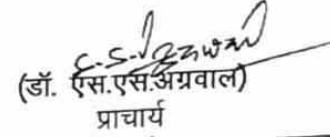 (डॉ. एस.एस.अग्रवाल)
प्राचार्य